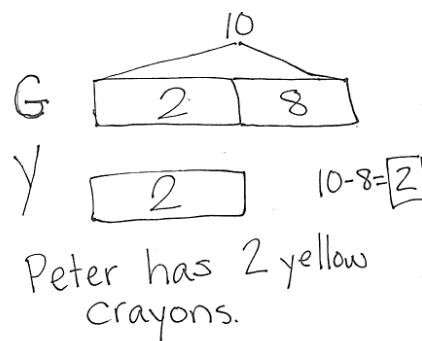 10
G 2 8
Y 2 10-8=2
Peter has 2 yellow
crayons.